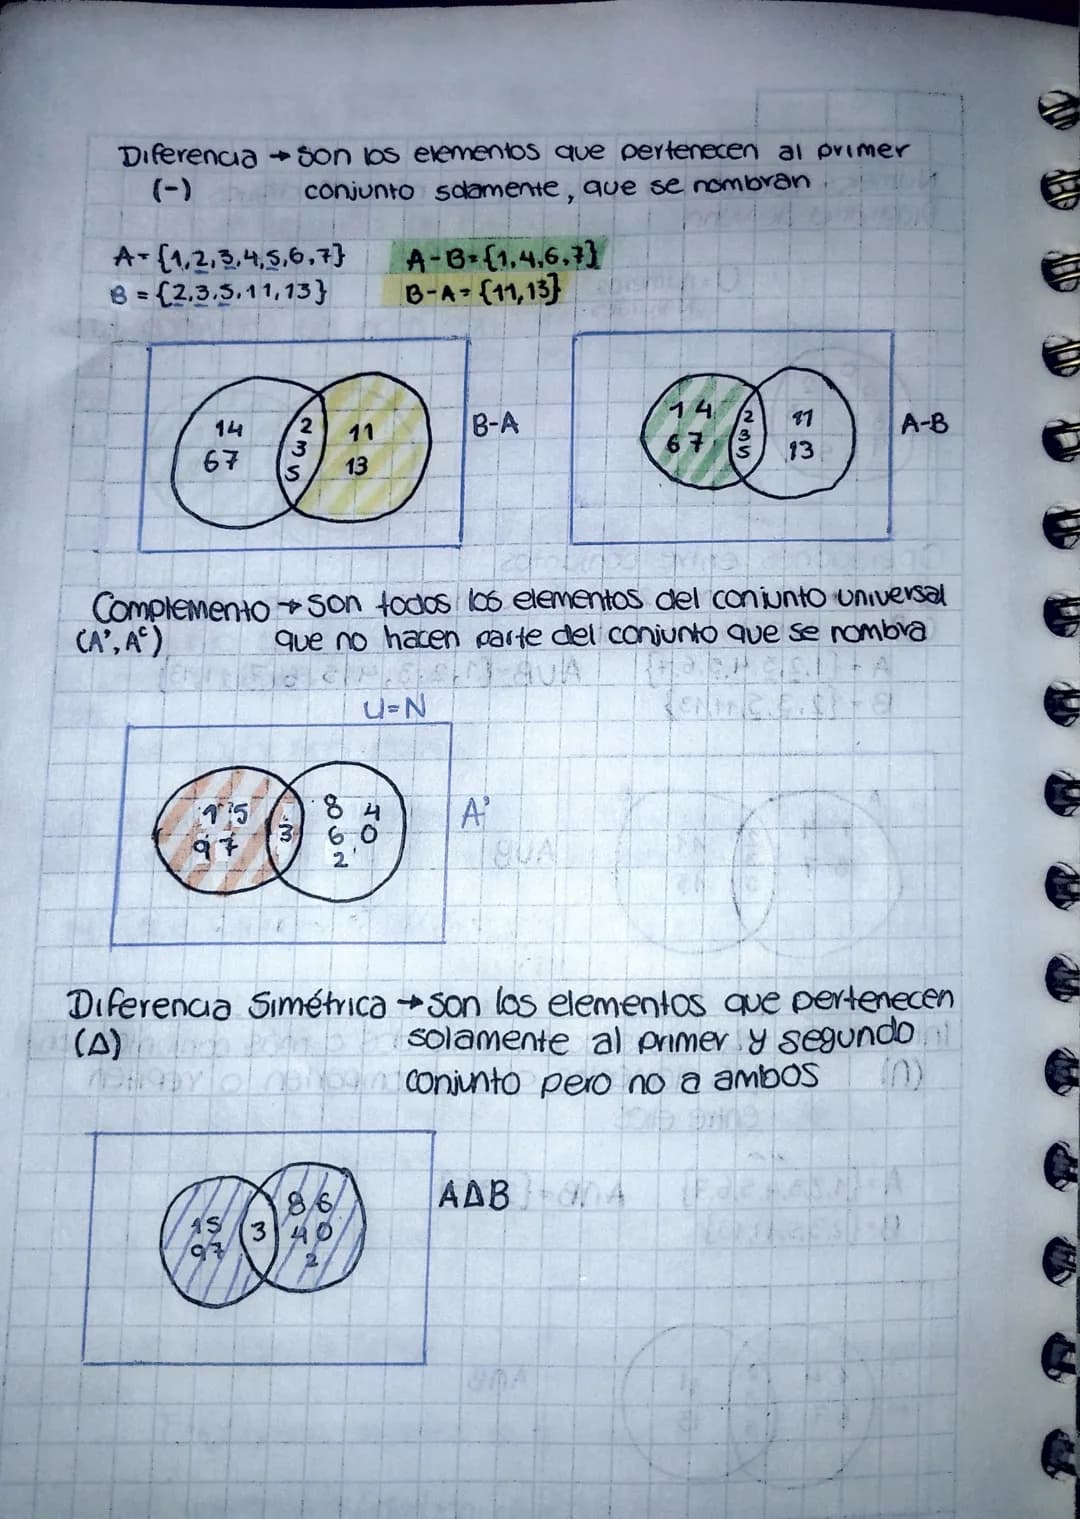 Diferencia → Son los elementos que pertenecen al primer
(-) conjunto solamente, que se nombran.
A={1,2,3,4,5,6,7} A-B={1,4,6,7}
B={2,3,5,11,13} B-A={11,13}
1 4 2 11
6 7 3 13
5
B-A
1 4 2 11
6 7 3 13
5
A-B
Complemento → Son todos los elementos del conjunto universal
(A', Aᶜ) que no hacen parte del conjunto que se nombra
U=N
1 5 8 4
9 7 3 6 0
2
A'
Diferencia Simétrica → Son los elementos que pertenecen
(Δ) solamente al primer y segundo
conjunto pero no a ambos
1 5 8 6
9 7 3 4 0
2
AΔB